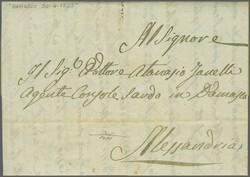 Al Signore
Il Sig.r Dottore Atanasio
Agente Console Sardo in Damasco
Alessandria